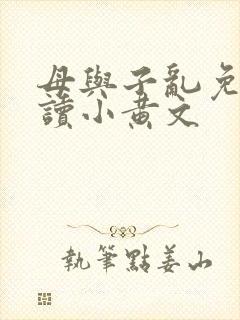 母與子亂免
讀小黃文
執筆點姜山